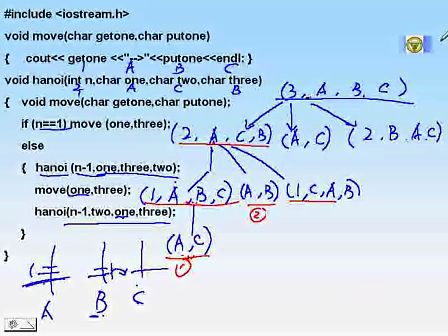 #include <iostream.h>
void move(char getone,char putone)
{ cout<< getone <<"->"<<putone<<endl; }
1 A B C
void hanoi(int n,char one,char two,char three)
2 A C B
(3, A, B, C)
{ void move(char getone,char putone);
if (n==1) move (one,three);
(2, A, C, B) (A, C) (2, B, A, C)
else
{ hanoi (n-1,one,three,two);
move(one,three);
(1, A, B, C) (A, B) (1, C, A, B)
hanoi(n-1,two,one,three);
②
}
(A, C)
①
}
A B C